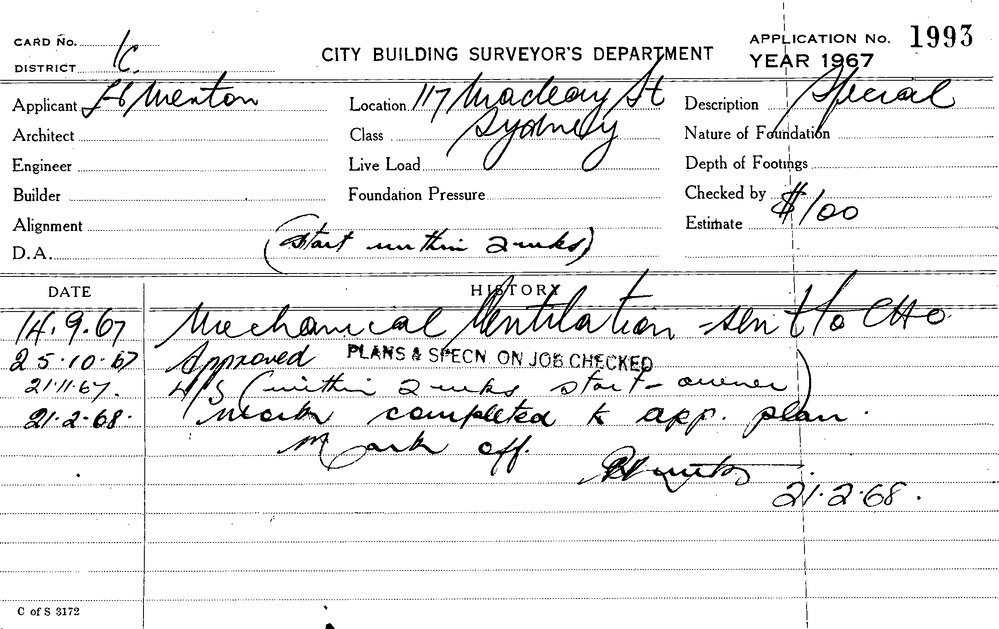 CARD No.
DISTRICT K.
CITY BUILDING SURVEYOR'S DEPARTMENT
APPLICATION No. 1993
YEAR 1967
Applicant Menton
Location 117 Macleay St
Sydney
Description Special
Architect
Class
Nature of Foundation
Engineer
Live Load
Depth of Footings
Builder
Foundation Pressure
Checked by
Alignment
Estimate $100
D.A. (Start within 2 wks)
DATE
HISTORY
14.9.67 Mechanical Ventilation - sent to CHO
25.10.67 Approved PLANS & SPECN. ON JOB CHECKED
21.11.67. N/S (within 2 wks start - owner)
21.2.68. Work completed to app. plan.
Mark off.
21.2.68.
C of S 3172